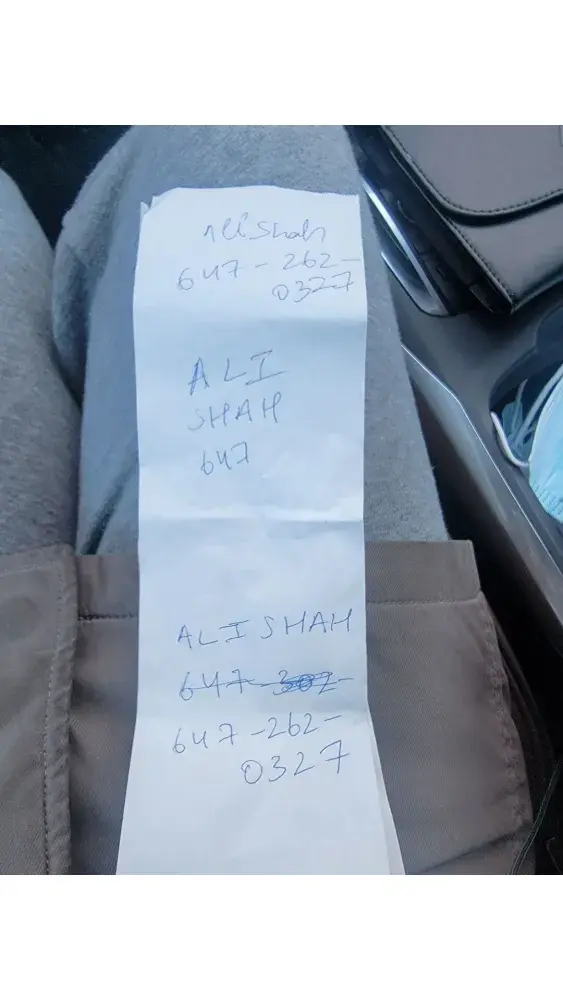 Ali Shah
647-262-
0327
ALI
SHAH
647
ALI SHAH
647-302-
647-262-
0327